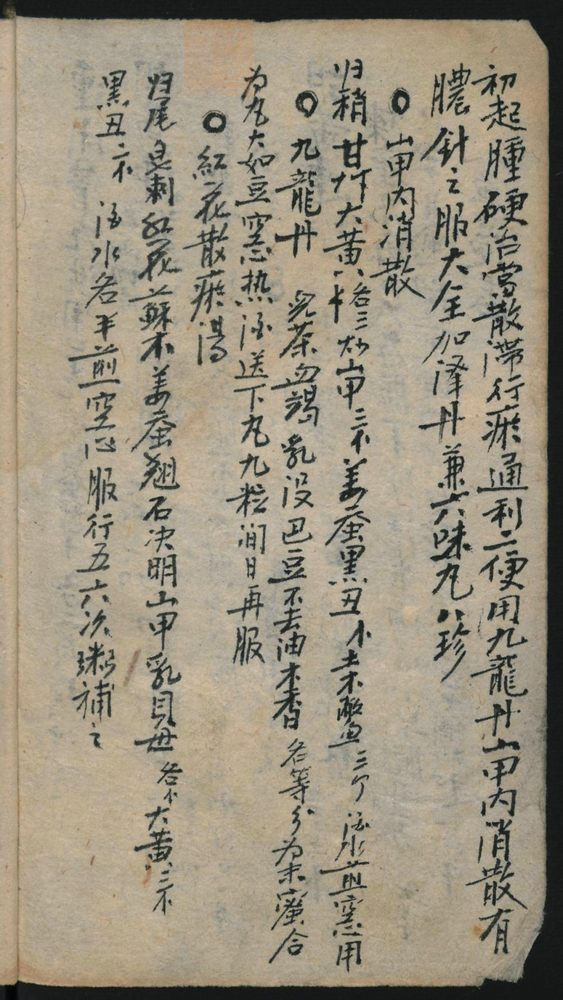 初起腫硬治當散滯行瘀通利二便用九龍丹山甲内消散有
膿針之服大全加澤丹兼六味丸八珍
○山甲内消散
归稍甘草大黄各三炒山甲三木姜蚕黑丑个土木鱉三个酒水前空心用
○九龍丹 兒茶血竭乳没巴豆不去油木香各等分为末蜜合
为丸大如豆空心热酒送下九粒间日再服
○紅花散瘀湯
归尾皂刺紅花蘇木姜蚕翘石决明山甲乳貝母各大黄三
黑丑 酒水各半前空心服行五六次粥補之